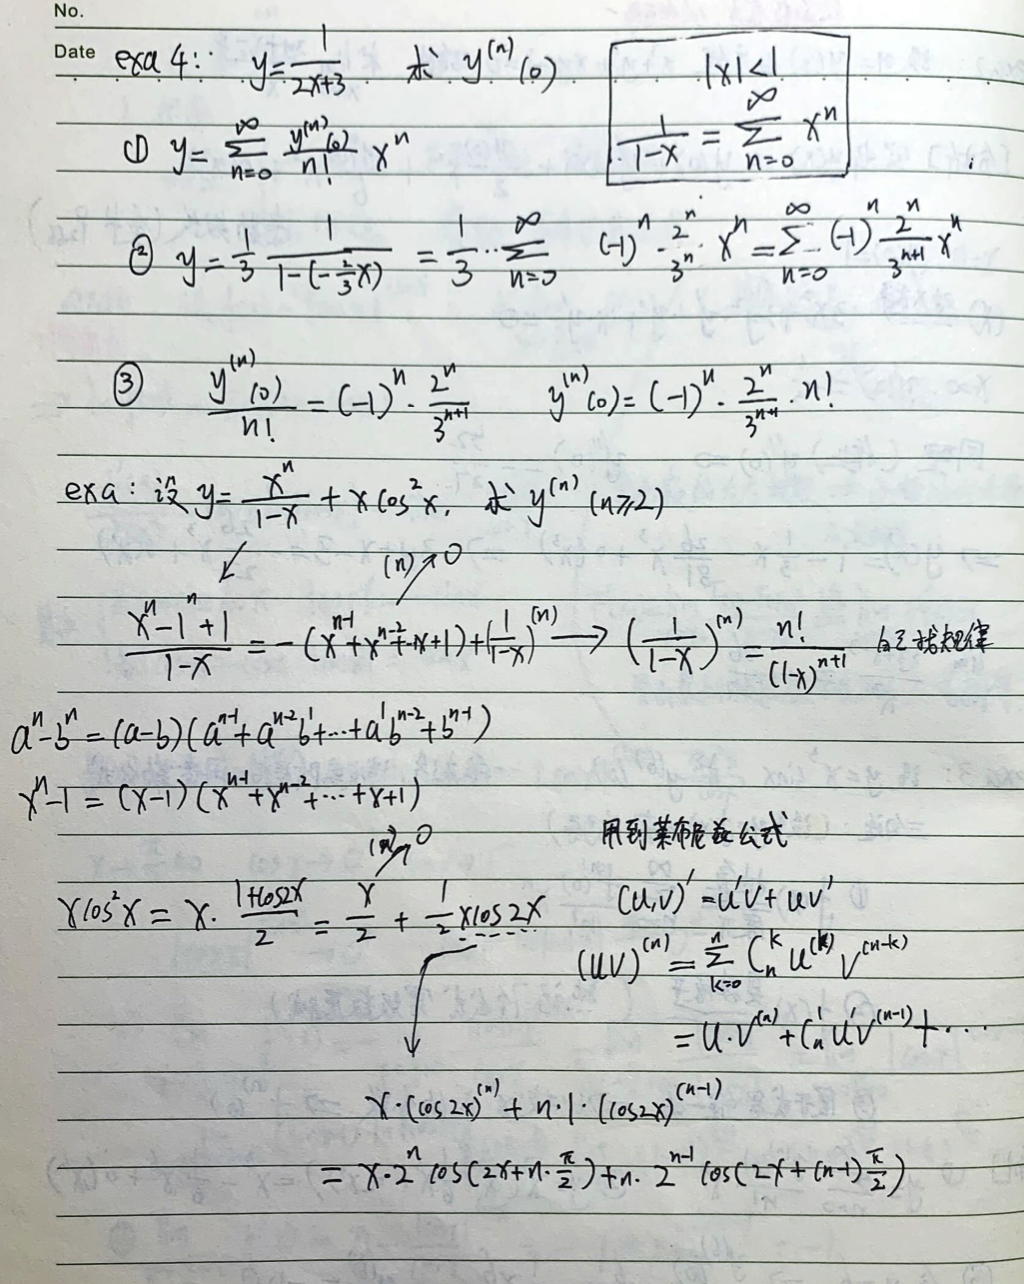 No.
Date exa 4: y=1/(2x+3) 求 y⁽ⁿ⁾(0)
|x|<1
1/(1-x) = ∑_{n=0}^{∞} xⁿ
① y= ∑_{n=0}^{∞} y⁽ⁿ⁾(0)/n! xⁿ
② y= 1/3 · 1/(1-(-2/3 x)) = 1/3 · ∑_{n=0}^{∞} (-1)ⁿ · 2ⁿ/3ⁿ · xⁿ = ∑_{n=0}^{∞} (-1)ⁿ 2ⁿ/3ⁿ⁺¹ xⁿ
③ y⁽ⁿ⁾(0)/n! = (-1)ⁿ · 2ⁿ/3ⁿ⁺¹ y⁽ⁿ⁾(0) = (-1)ⁿ · 2ⁿ/3ⁿ⁺¹ · n!
exa: 设 y= xⁿ/(1-x) + x cos²x, 求 y⁽ⁿ⁾ (n≥2)
(n) ↗ 0
(xⁿ-1ⁿ+1)/(1-x) = -(xⁿ⁻¹+xⁿ⁻²+…x+1)+(1/(1-x))⁽ⁿ⁾ → (1/(1-x))⁽ⁿ⁾ = n!/(1-x)ⁿ⁺¹ 自己找规律
aⁿ-bⁿ = (a-b)(aⁿ⁻¹+aⁿ⁻²b¹+…+a¹bⁿ⁻²+bⁿ⁻¹)
xⁿ-1 = (x-1)(xⁿ⁻¹+xⁿ⁻²+…+x+1)
(n) ↗ 0
用到莱布尼兹公式
xcos²x = x · (1+cos2x)/2 = x/2 + 1/2 xcos2x
(u,v)′ = u′v+uv′
(uv)⁽ⁿ⁾ = ∑_{k=0}^{n} Cₙᵏ u⁽ᵏ⁾ v⁽ⁿ⁻ᵏ⁾
= u·v⁽ⁿ⁾ + Cₙ¹ u′v⁽ⁿ⁻¹⁾ + …
x·(cos2x)⁽ⁿ⁾ + n·1·(cos2x)⁽ⁿ⁻¹⁾
= x·2ⁿ cos(2x+n·π/2) + n·2ⁿ⁻¹ cos(2x+(n-1)π/2)